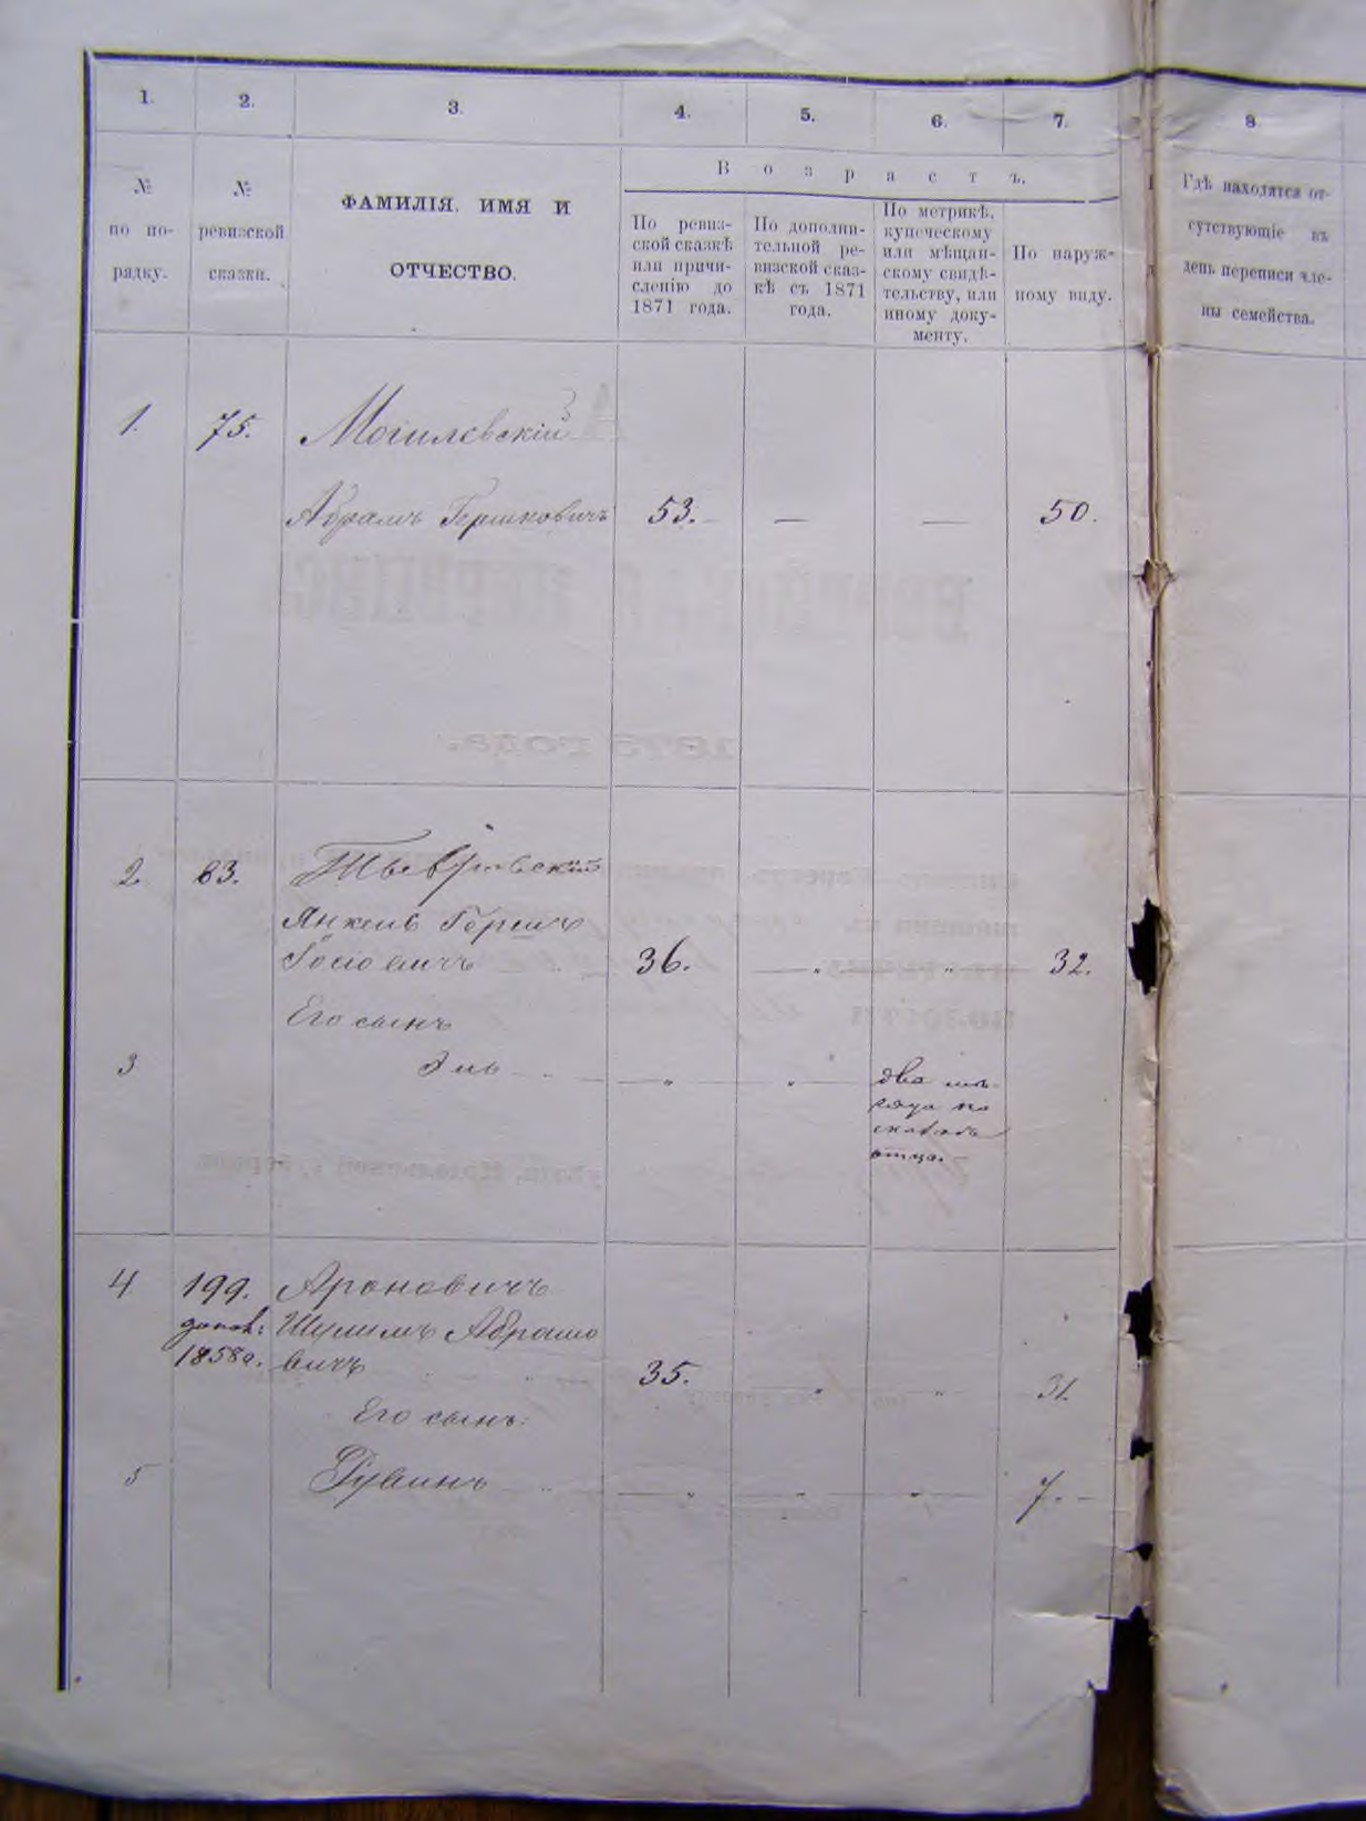 1. 2. 3. 4. 5. 6. 7. 8
№ по по-рядку.
№ ревизской сказки.
ФАМИЛІЯ, ИМЯ И
ОТЧЕСТВО.
Возрастъ.
По ревиз-
ской сказкѣ
или причи-
сленію до
1871 года.
По дополни-
тельной ре-
визской сказ-
кѣ съ 1871
года.
По метрикѣ,
купеческому
или мѣщан-
скому свидѣ-
тельству, или
иному доку-
менту.
По наруж-
ному виду.
Гдѣ находятся от-
сутствующіе въ
день переписи чле-
ны семейства.
1. 75. Могилевскій
Абрамъ Гершковичъ 53. — — 50.
2 83.
Янкель Гершъ
Іосіовичъ 36. — „ „ 32.
Его сынъ
3 Эль — „ — „ — два мѣ-
сяца по
отца.
4 199. Ароновичъ
Шулимъ Абрамо
1858 г. вичъ 35. „ „ 31.
Его сынъ:
5 Рувинъ — „ „ „ 7. —